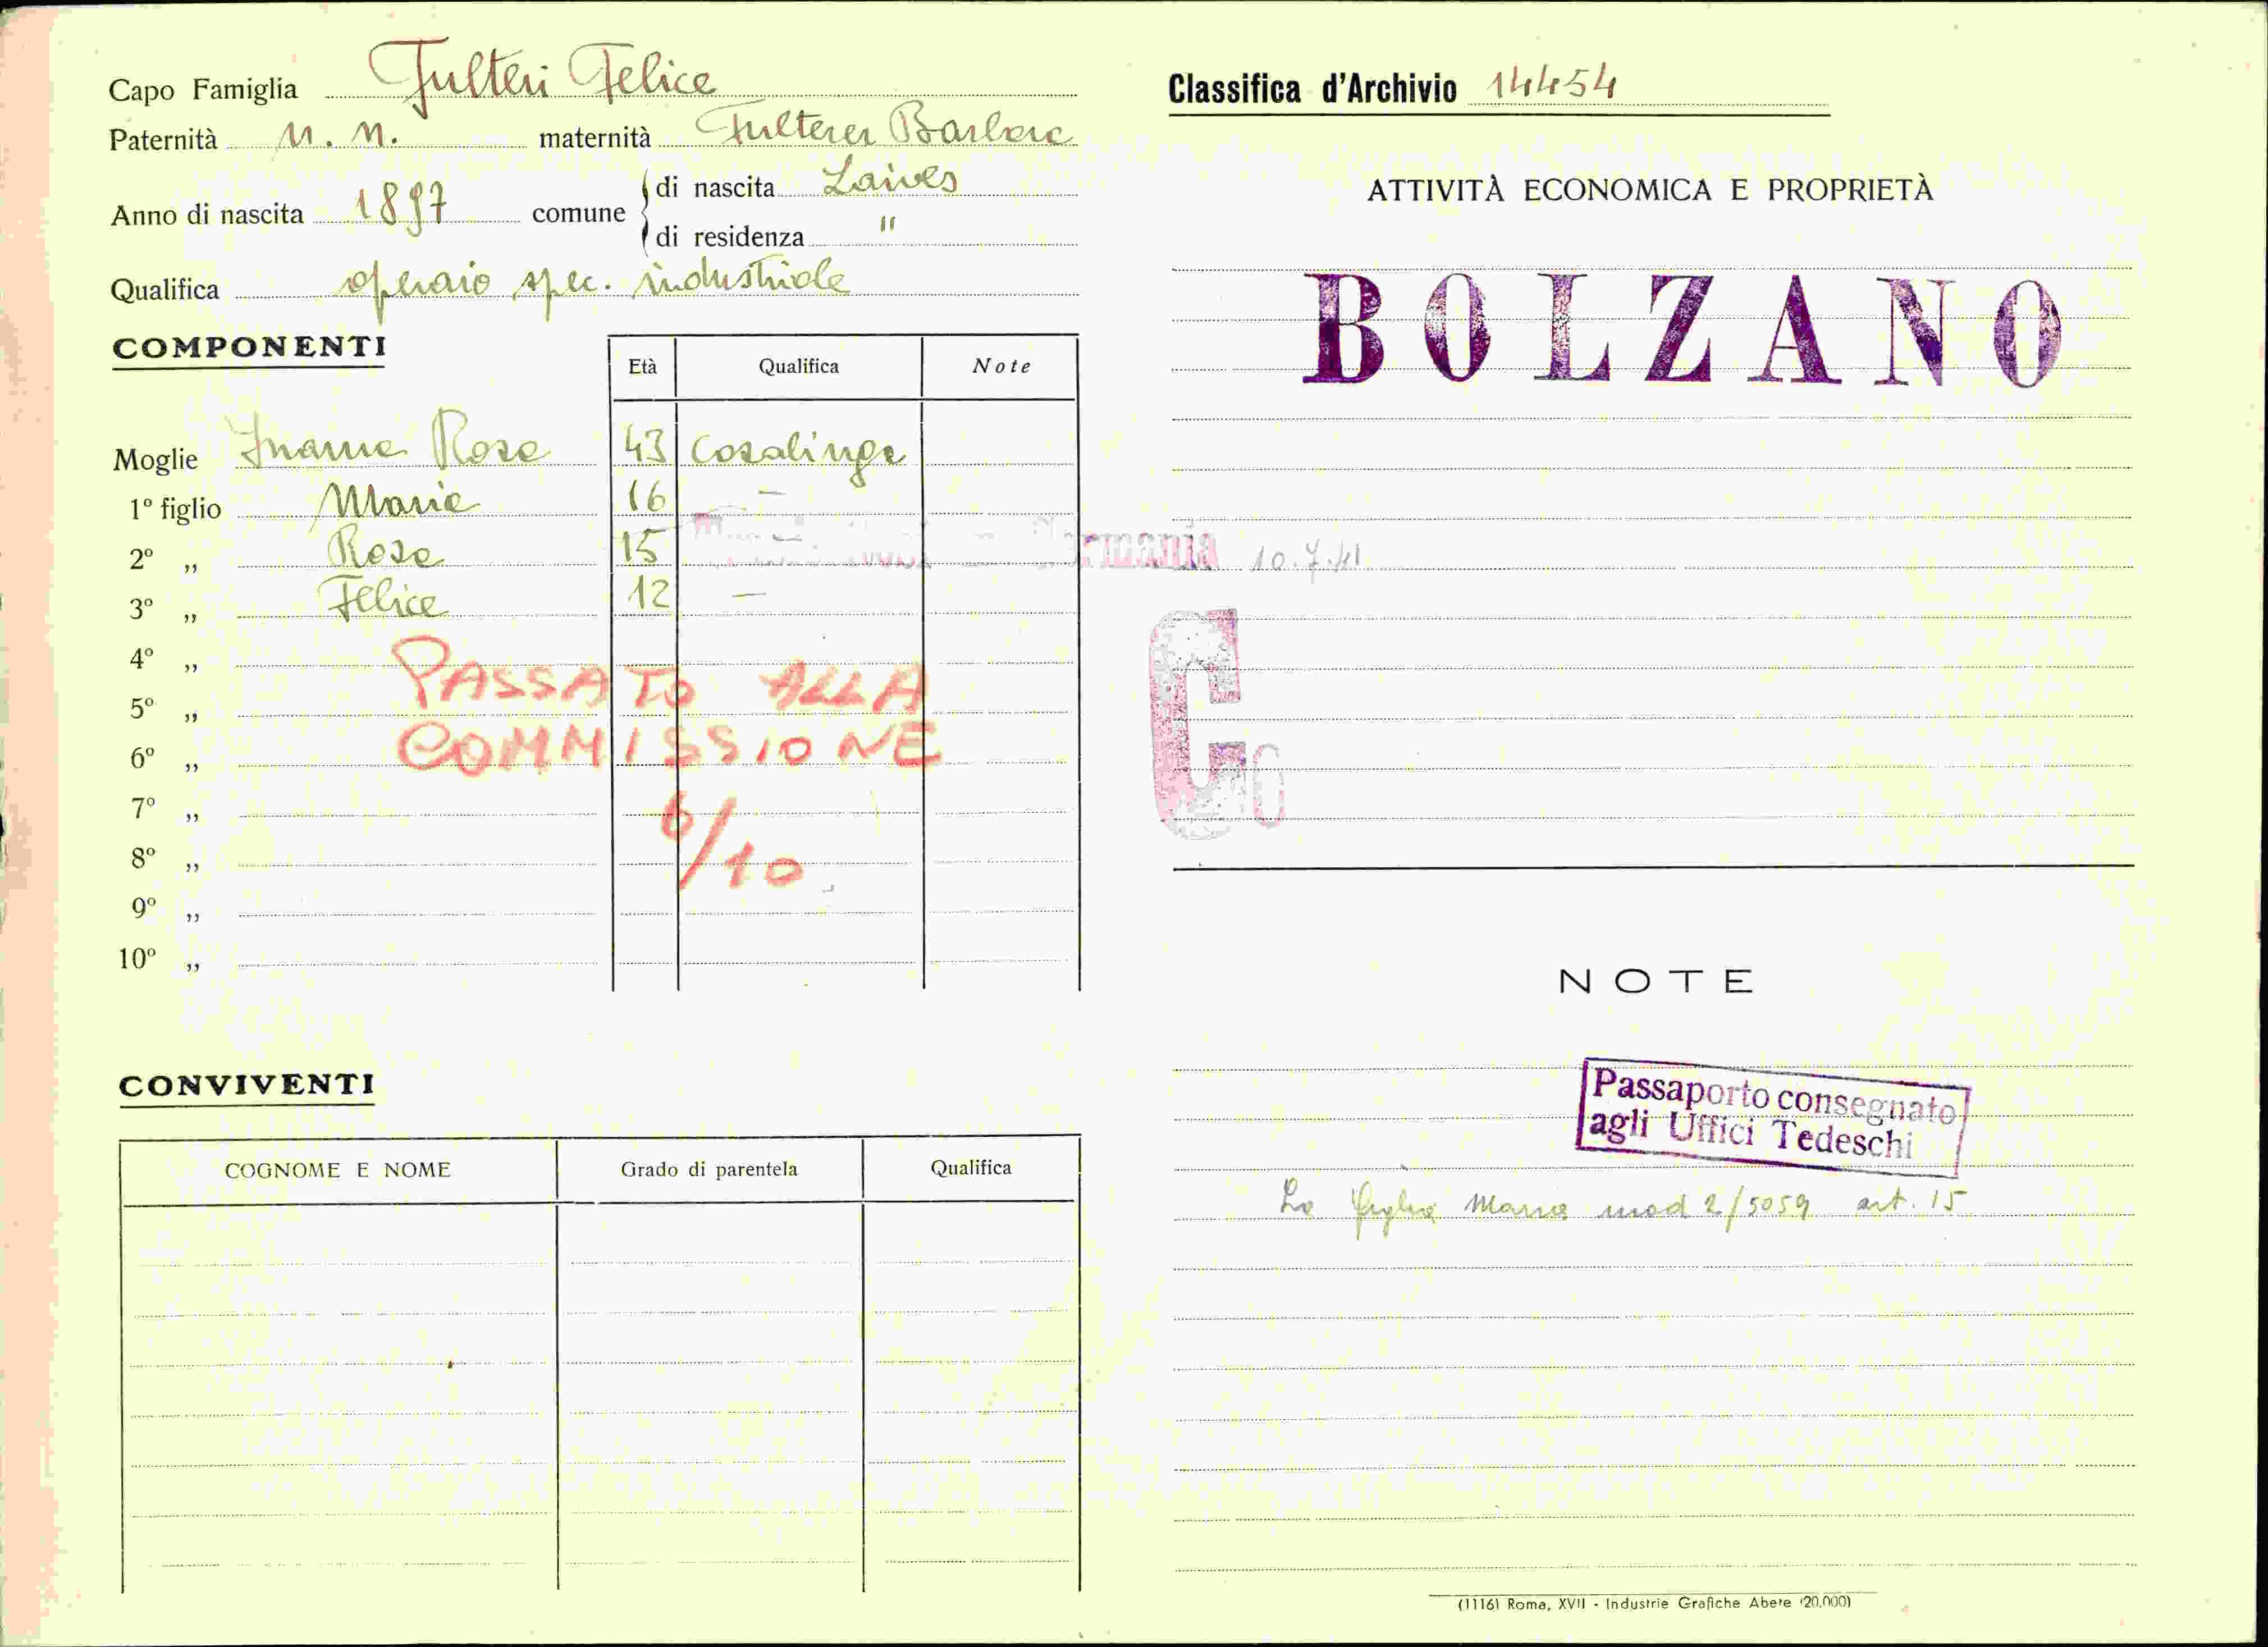 Capo Famiglia Fulteri Felice
Paternità n. n. maternità Fulterer Barbara
Anno di nascita 1897 comune di nascita Laives
di residenza "
Qualifica operaio spec. industriale
COMPONENTI
Età Qualifica Note
Moglie Iname Rosa 43 Casalinga
1º figlio Maria 16 –
2º „ Rosa 15 –
3º „ Felice 12 –
4º „
5º „
6º „
7º „
8º „
9º „
10º „
PASSATO ALLA
COMMISSIONE
6/10
CONVIVENTI
COGNOME E NOME Grado di parentela Qualifica
Classifica d'Archivio 14454
ATTIVITÀ ECONOMICA E PROPRIETÀ
BOLZANO
Germania 10.7.41
C
C
NOTE
Passaporto consegnato
agli Uffici Tedeschi
La figlia Maria mod 2/5059 art. 15
(1116) Roma, XVII - Industrie Grafiche Abete (20.000)